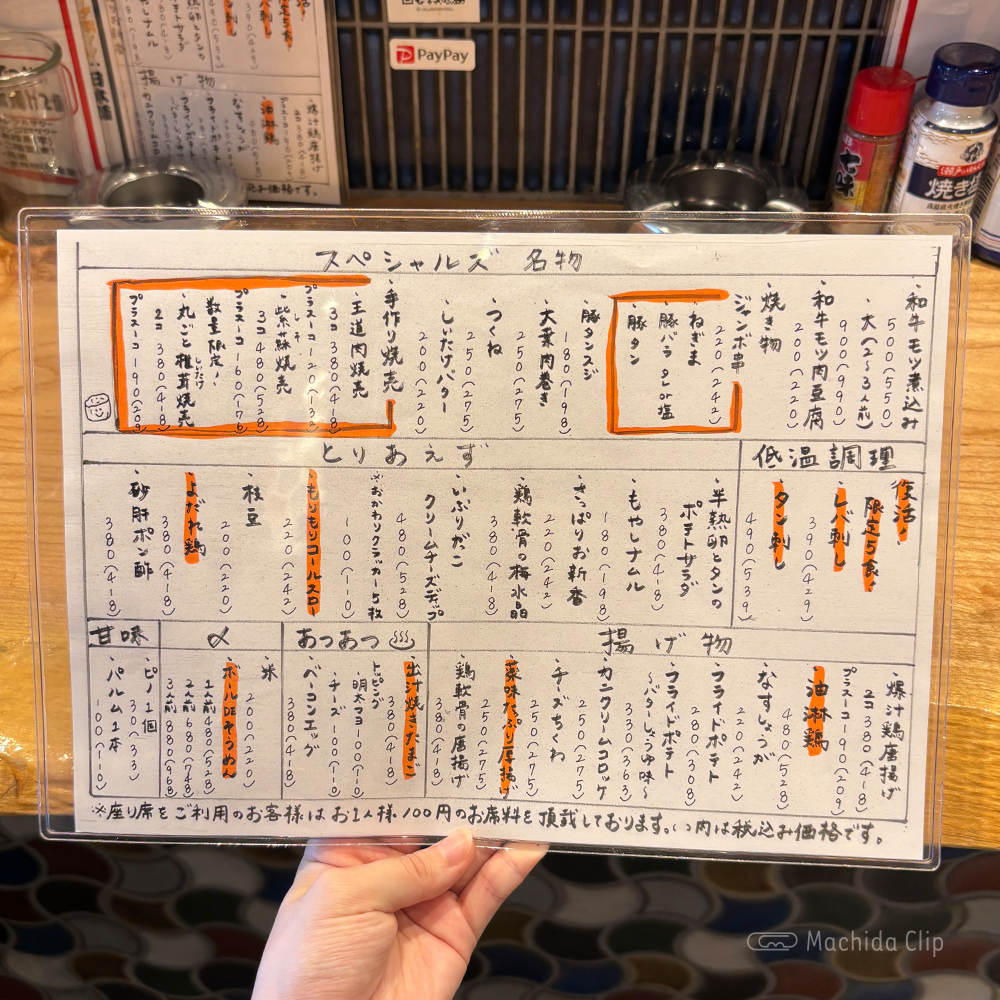 PayPay
焼き塩
スペシャルズ 名物
・和牛モツ煮込み
500(550)
・大(2~3人前)
900(990)
・和牛モツ肉豆腐
200(220)
・焼き物
ジャンボ串
220(242)
・ねぎま
・豚バラ タレor塩
・豚タン
・豚タンスジ
180(198)
・大葉肉巻き
250(275)
・つくね
250(275)
・しいたけバター
200(220)
・手作り焼売
・王道肉焼売
3コ 380(418)
プラス一コ 120(132)
・紫蘇焼売
しそ
3コ 480(528)
プラス一コ 160(176)
数量限定!
・丸ごと椎茸焼売
しいたけ
2コ 380(418)
プラス一コ 190(209)
低温調理
復活!
限定5食!
・レバ刺し
390(429)
・タン刺し
490(539)
とりあえず
・半熟卵とタンの
ポテトサラダ
380(418)
・もやしナムル
180(198)
・さっぱりお新香
220(242)
・鶏軟骨の梅水晶
380(418)
・いぶりがっこ
クリームチーズディップ
480(528)
※おかわりクラッカー5枚
100(110)
・もりもりコールスロー
220(242)
・枝豆
200(220)
・よだれ鶏
380(418)
・砂肝ポン酢
380(418)
揚げ物
・爆汁鶏唐揚げ
2コ 380(418)
プラス一コ 190(209)
・油淋鶏
480(528)
・なすしょうが
220(242)
・フライドポテト
280(308)
・フライドポテト
~バターしょうゆ味~
330(363)
・カニクリームコロッケ
250(275)
・チーズちくわ
250(275)
・薬味たっぷり厚揚げ
250(275)
・鶏軟骨の唐揚げ
380(418)
あつあつ
・出汁焼きたまご
380(418)
トッピング
・明太マヨ 100(110)
・チーズ 100(110)
・ベーコンエッグ
380(418)
〆
・米
200(220)
・ボールDEそうめん
1人前 480(528)
2人前 680(748)
3人前 880(968)
甘味
・ピノ1個
30(33)
・パルム1本
100(110)
※座り席をご利用のお客様はお1人様100円のお席料を頂戴しております。()内は税込み価格です。
Machida Clip